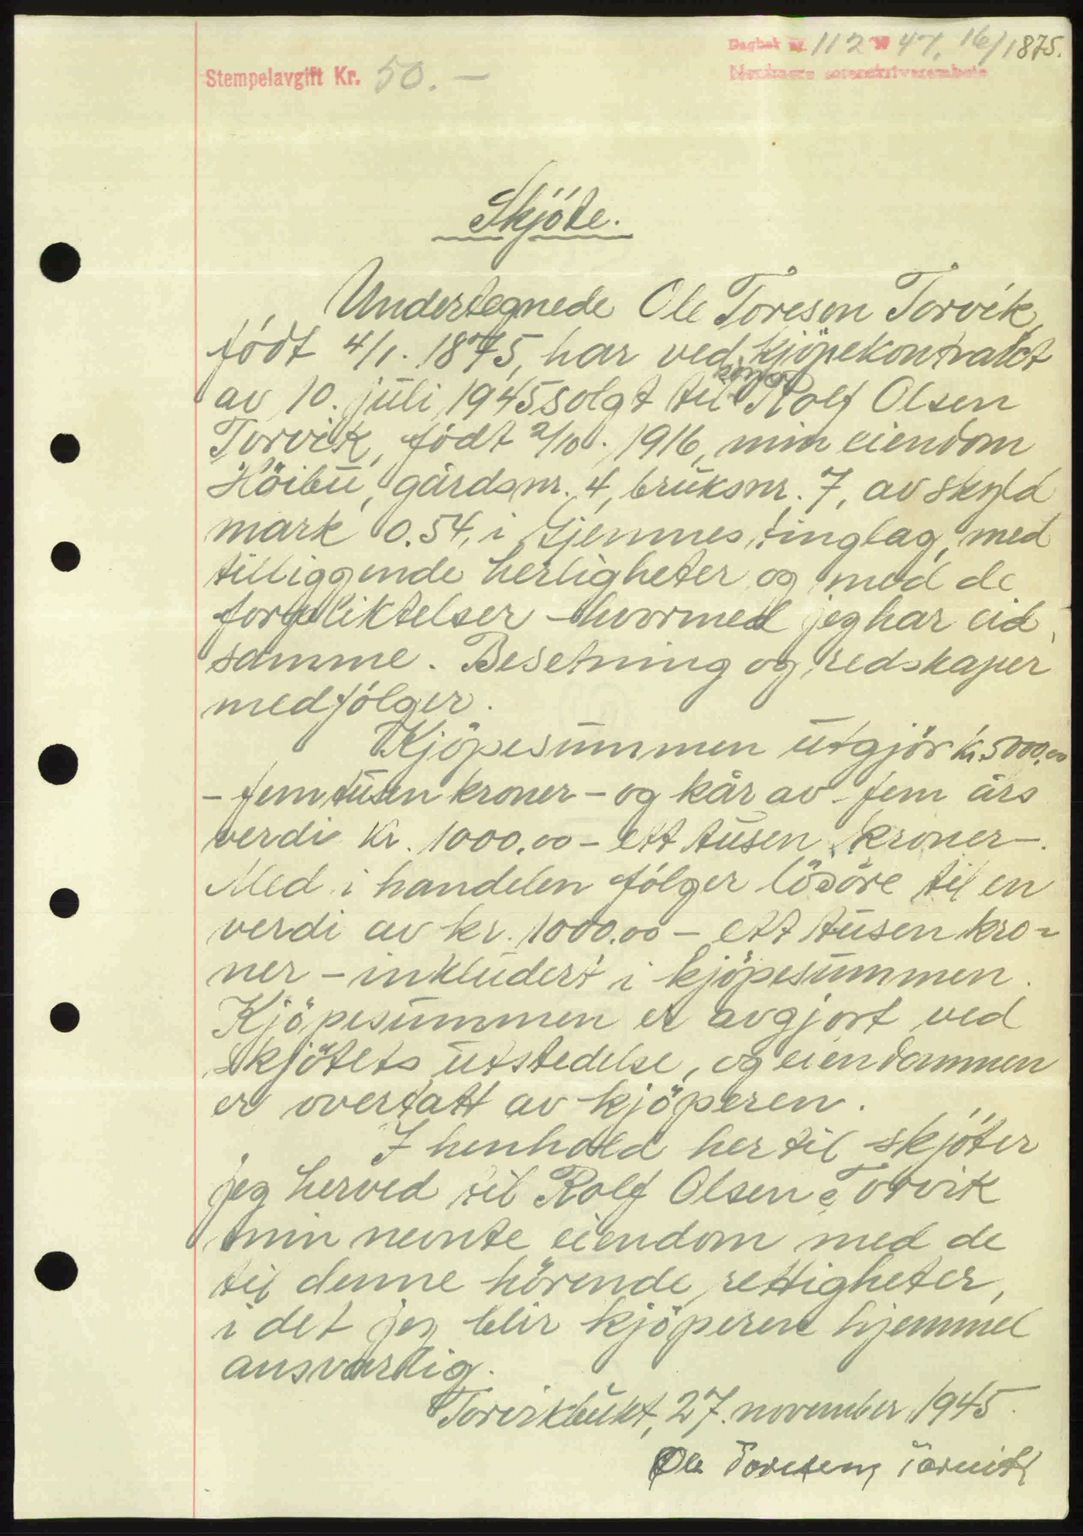 Dagbok nr. 112 19 47. 16/1875.
Stempelavgift Kr. 50.—
Nordmøre sorenskriverembete
Skjöte.
Undertegnede Ole Toresen Torvik,
födt 4/1. 1875, har ved kjöpekontrakt
av 10. juli 1945 solgt til sönn Rolf Olsen
Torvik, födt 2/10. 1916, min eiendom
Höibu, gårdsnr. 4, bruksnr. 7, av skyld
mark 0.54, i Gjemnes tinglag, med
tilliggende herligheter og med de
forpliktelser hvormed jeg har eid
samme. Besetning og redskaper
medfölger.
Kjöpesummen utgjör kr. 5000,00
- femtusen kroner - og kår av fem års
verdi kr. 1000,00 - ett tusen kroner -.
Med i handelen fölger lösöre til en
verdi av kr. 1000,00 - ett tusen kro-
ner - inkludert i kjöpesummen.
Kjöpesummen er avgjort ved
skjötets utstedelse, og eiendommen
er overtatt av kjöperen.
I henhold hertil skjöter
jeg herved til Rolf Olsen Torvik
min nevnte eiendom med de
til denne hörende rettigheter,
i det jeg blir kjöperen hjemmel
ansvarlig.
Torvikbukt, 27. november 1945.
Ole Toresen Torvik